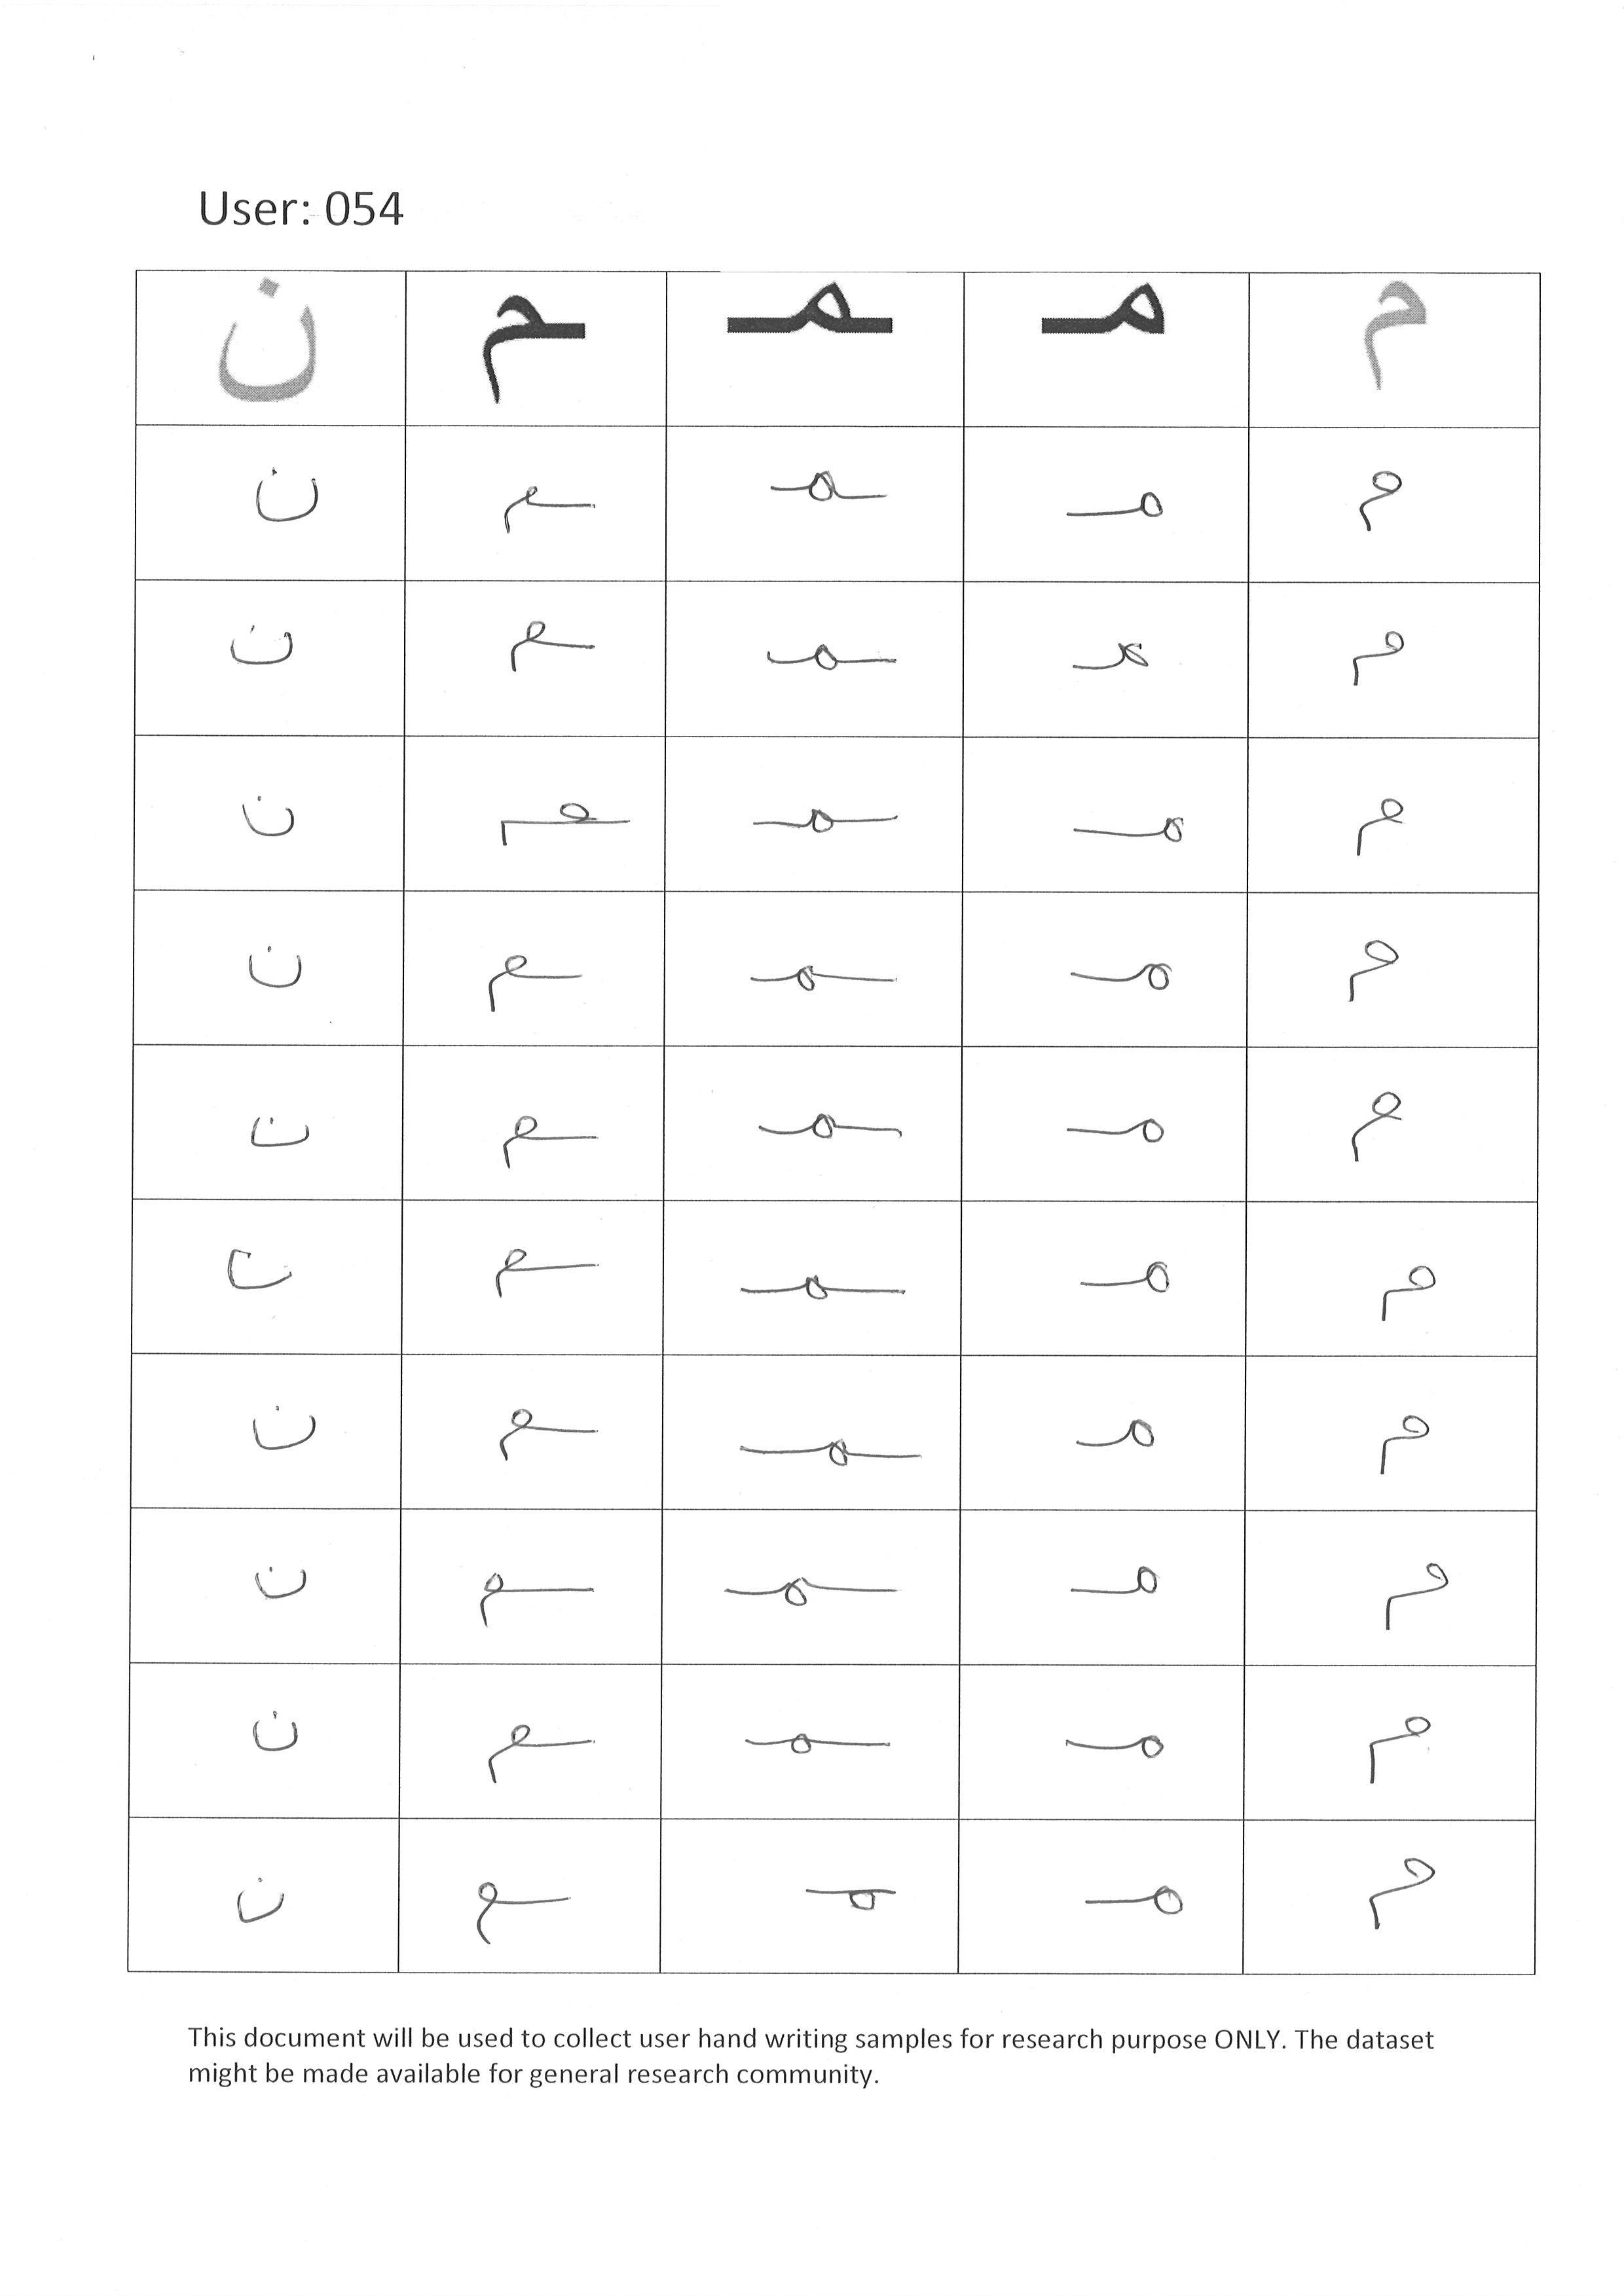 User: 054
م مـ ـمـ ـم ن
م مـ ـمـ ـم ن
م مـ ـمـ ـم ن
م مـ ـمـ ـم ن
م مـ ـمـ ـم ن
م مـ ـمـ ـم ن
م مـ ـمـ ـم ن
م مـ ـمـ ـم ن
م مـ ـمـ ـم ن
م مـ ـمـ ـم ن
م مـ ـمـ ـم ن
This document will be used to collect user hand writing samples for research purpose ONLY. The dataset
might be made available for general research community.